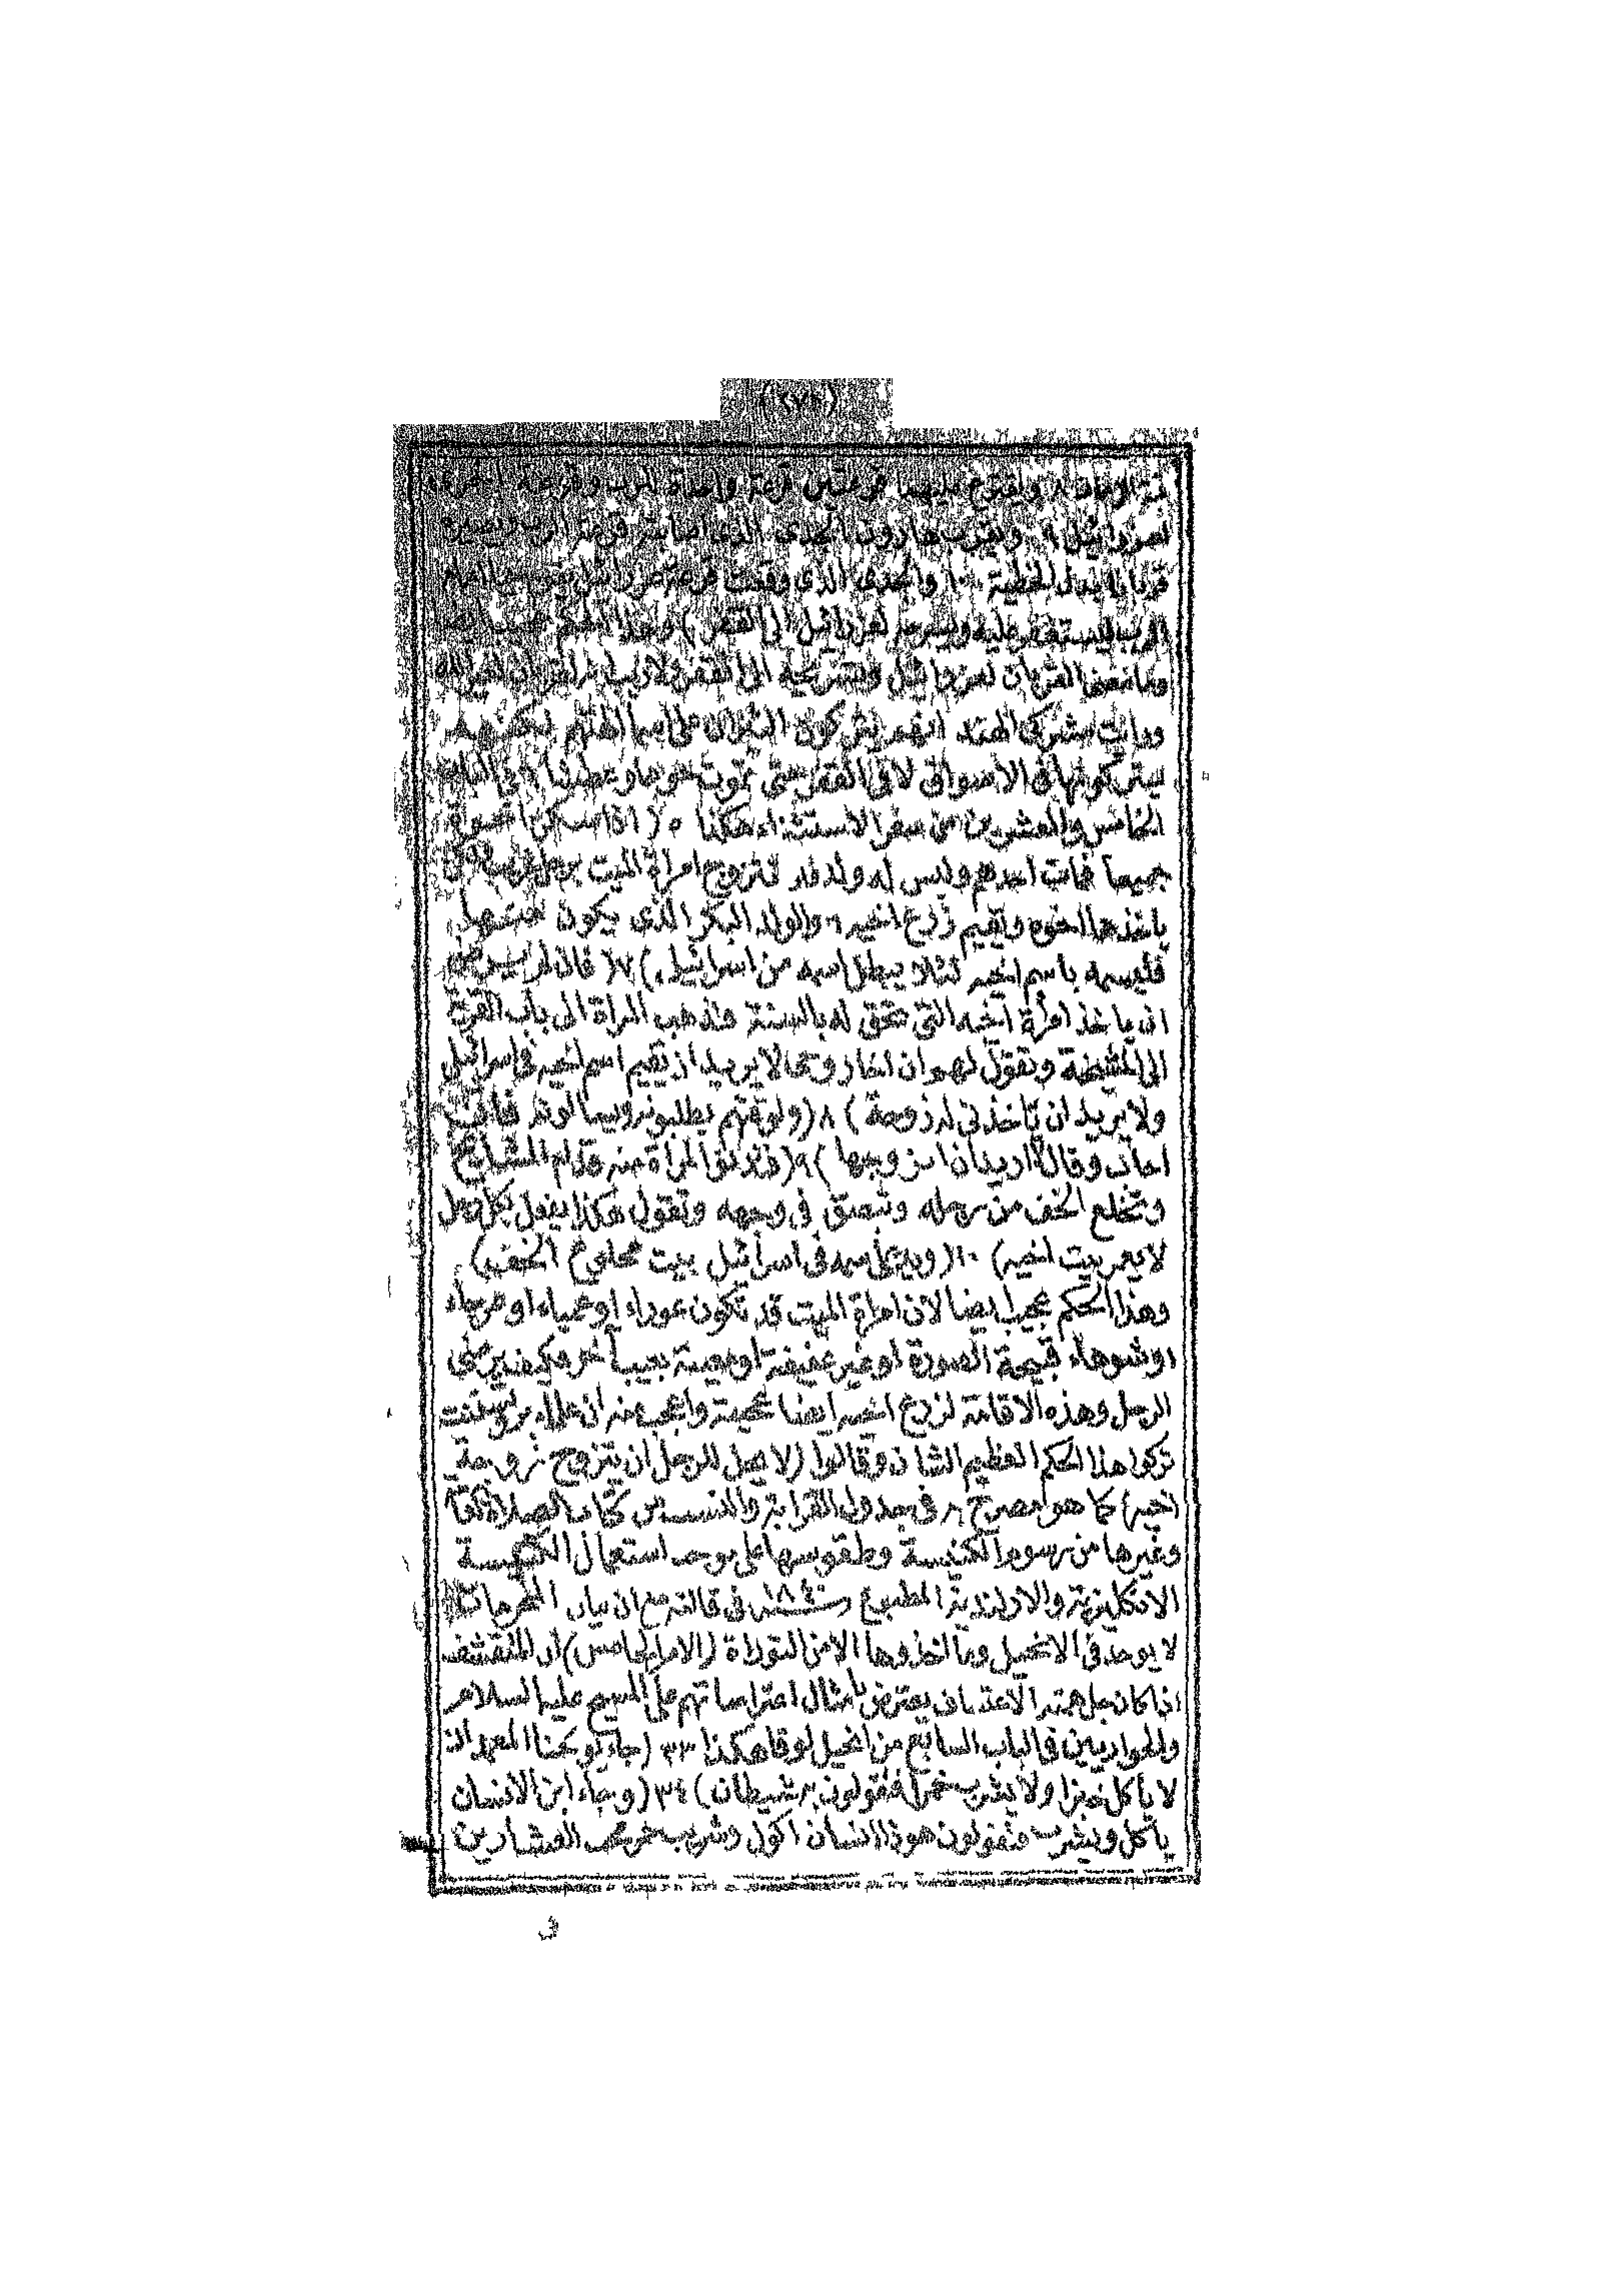 ويقترع عليهما قرعتين قرعة واحدة للرب وقرعة اخرى
لعزرائيل ٩ ويقرب هارون الجدى الذى اصابته قرعة الرب ويصيره
قربانا بدل الخطية ١٠ والجدى الذى وقعت قرعة عزرائيل
الرب ليستغفر عليه ويسرحه لعزرائيل الى القفر) وهذا الحكم عجيب ايضا
وما معنى القربان لعزرائيل وتسريحه الى القفر لا ريب
ورايت مشركى الهند انهم يتركون الثيران على اسماء الهتهم لكنهم
يتركونها فى الاسواق لا فى القفر حتى تموت جوعا وعطشا وفى الباب
الخامس والعشرين من سفر الاستثناء هكذا ٥ (اذا سكن اخوة
جميعا فمات احدهم وليس له ولد فلا تتزوج امراة الميت برجل غريب ولكن
ياخذها اخوه ويقيم زرع اخيه ٦ والولد البكر الذى يكون منها
فليسمه باسم اخيه لئلا يبطل اسمه من اسرائيل) ٧ (فان لم يرض
ان ياخذ امرأة اخيه التى تحق له بالسنة فتذهب المراة الى باب القرية
الى المشيخة وتقول لهم ان اخا زوجها لا يريد ان يقيم اسم اخيه فى اسرائيل
ولا يريد ان ياخذنى له زوجة) ٨ (ولوقتهم يطلبونه ويسألونه فان
اجاب وقال لا اريد ان اتزوجها) ٩ (فتدنو المراة منه قدام المشايخ
وتخلع الخف من رجله وتبصق فى وجهه وتقول هكذا يفعل بكل رجل
لا يعمر بيت اخيه) ١٠ (ويدعى اسمه فى اسرائيل بيت مخلوع الخف)
وهذا الحكم عجيب ايضا لان امراة الميت قد تكون عوراء او عمياء او عرجاء
او شوهاء قبيحة الصورة او غير عفيفة او معيبة بعيب اخر فكيف يرضى
الرجل وهذه الاقامة لزرع اخيه ايضا عجيبة واعجب منه ان علماء پروتستنت
تركوا هذا الحكم العظيم الشان وقالوا (لا يحل للرجل ان يتزوج زوجة
اخيه) كما هو مصرح به فى جدول القرابة والنسب من كتاب الصلاة العامة
وغيرها من رسوم الكنيسة وطقوسها على موجب استعمال الكنيسة
الانكليزية والارلندية المطبوع سنة ١٨٤٠ فى فالته مع ان بيان المحرمات
لا يوجد فى الانجيل وما اخذوها الا من التوراة (الامر الخامس) ان المتقشف
اذا كان جل همته الاعتساف يعترض بامثال اعتراضاتهم على المسيح عليه السلام
والحواريين فى الباب السابع من انجيل لوقا هكذا ٣٣ (جاء يوحنا المعمدان
لا ياكل خبزا ولا يشرب خمرا فتقولون به شيطان) ٣٤ (وجاء ابن الانسان
ياكل ويشرب فتقولون هوذا انسان اكول وشريب خمر محب العشارين